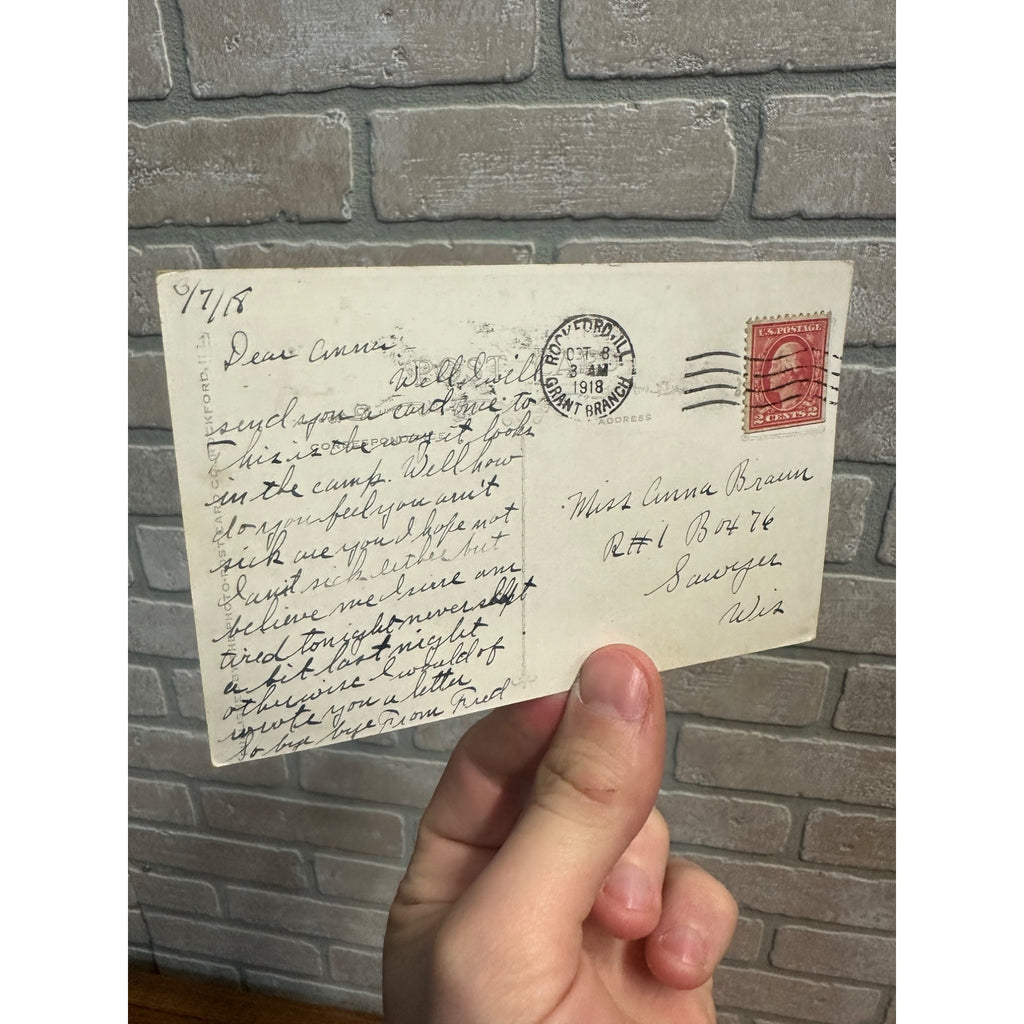 /7/18
Dear Anna
Well I will
send you a card me to
his is the way it looks
in the camp. Well how
do you feel you ain't
sick are you I hope not
I ain't sick either but
believe me I sure am
tired tonight never slept
a bit last night
otherwise I would of
wrote you a letter
So bye bye From Fred
POST
CORRESPONDENCE
ADDRESS
ROCKFORD, ILL.
OCT 8
3 AM
1918
GRANT BRANCH
U.S. POSTAGE
2 CENTS 2
Miss Anna Braun
R#1 Box 76
Sawyer
Wis
PHOTO POSTCARD CO. ROCKFORD, ILL